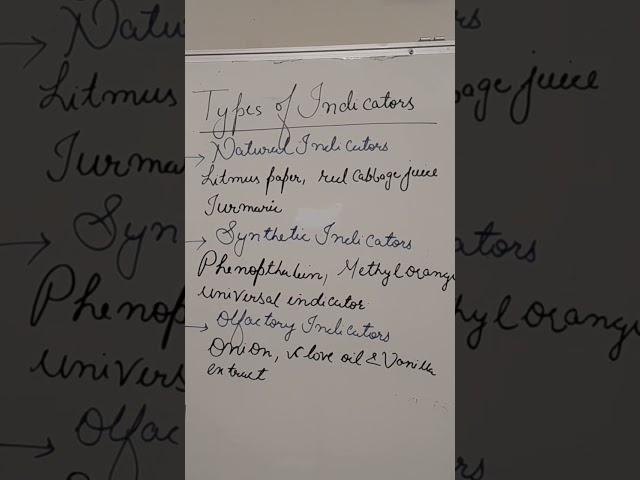 Types of Indicators
→ Natural Indicators
Litmus paper, red cabbage juice
Turmaric
→ Synthetic Indicators
Phenopthalin, Methyl orange
universal indicator
→ Olfactory Indicators
Onion, clove oil & Vanilla
extract